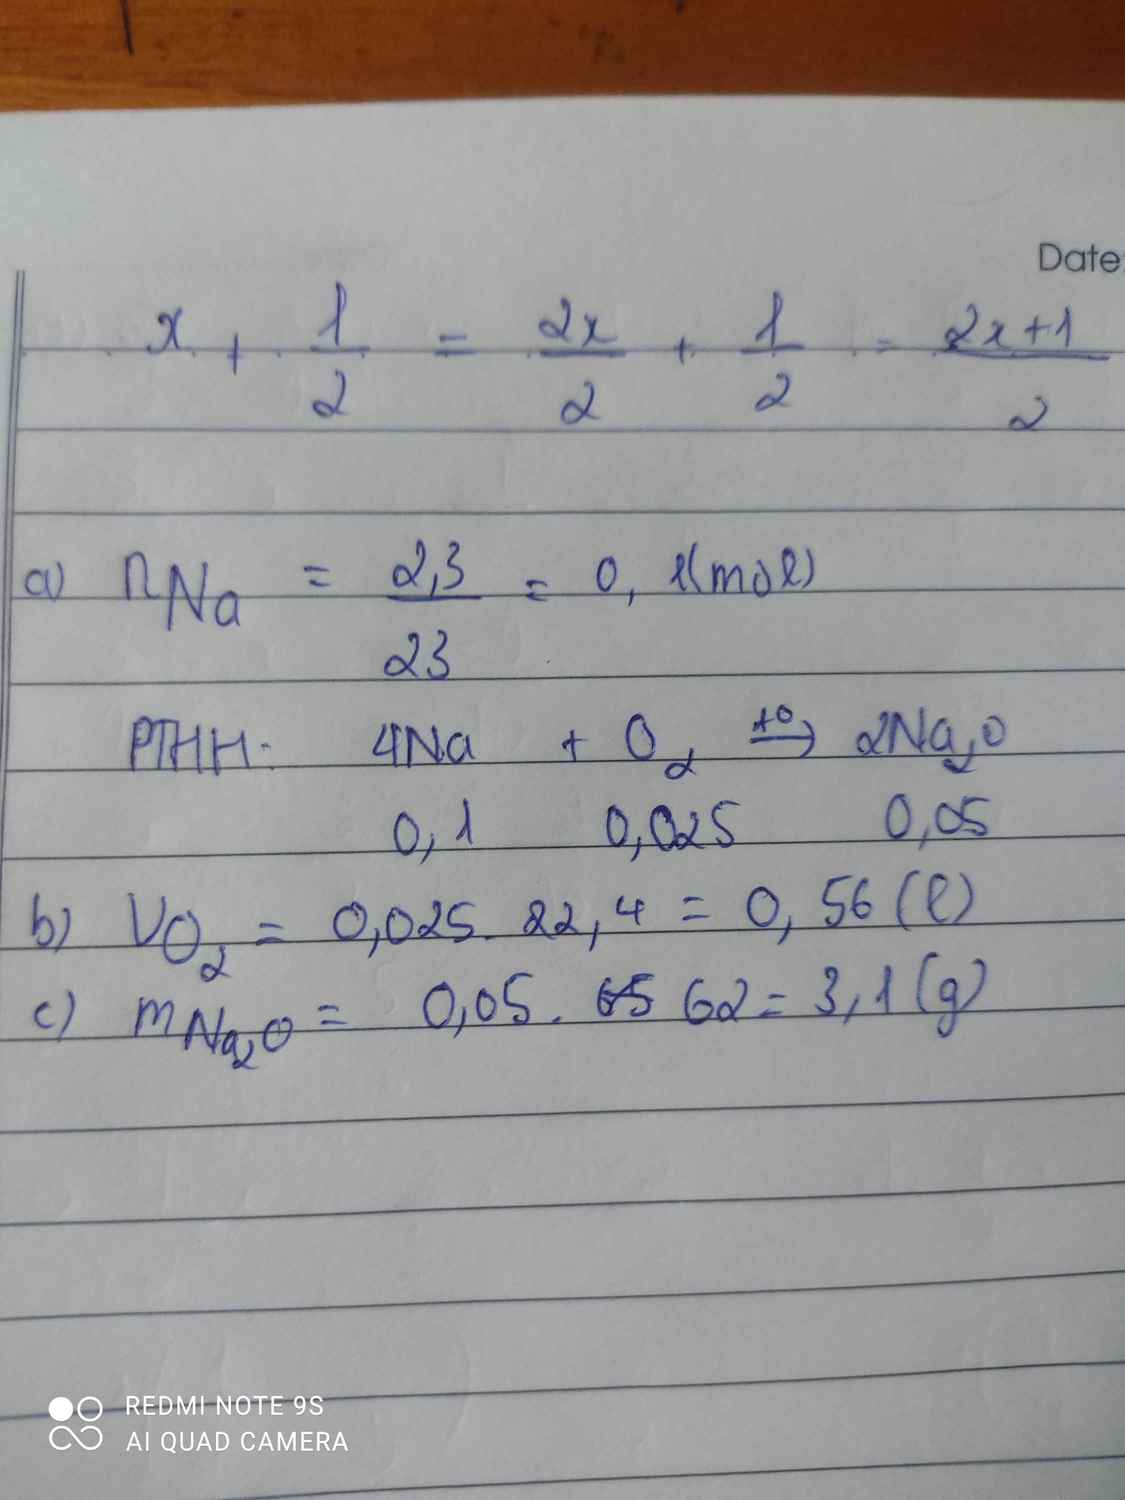 Date:
x + 1/2 = 2x/2 + 1/2 = 2x+1/2
a) nNa = 2,3/23 = 0,1(mol)
PTHH: 4Na + O2 t0→ 2Na2O
0,1 0,025 0,05
b) VO2 = 0,025. 22,4 = 0,56 (l)
c) mNa2O = 0,05. 65 62 = 3,1 (g)
REDMI NOTE 9S
AI QUAD CAMERA